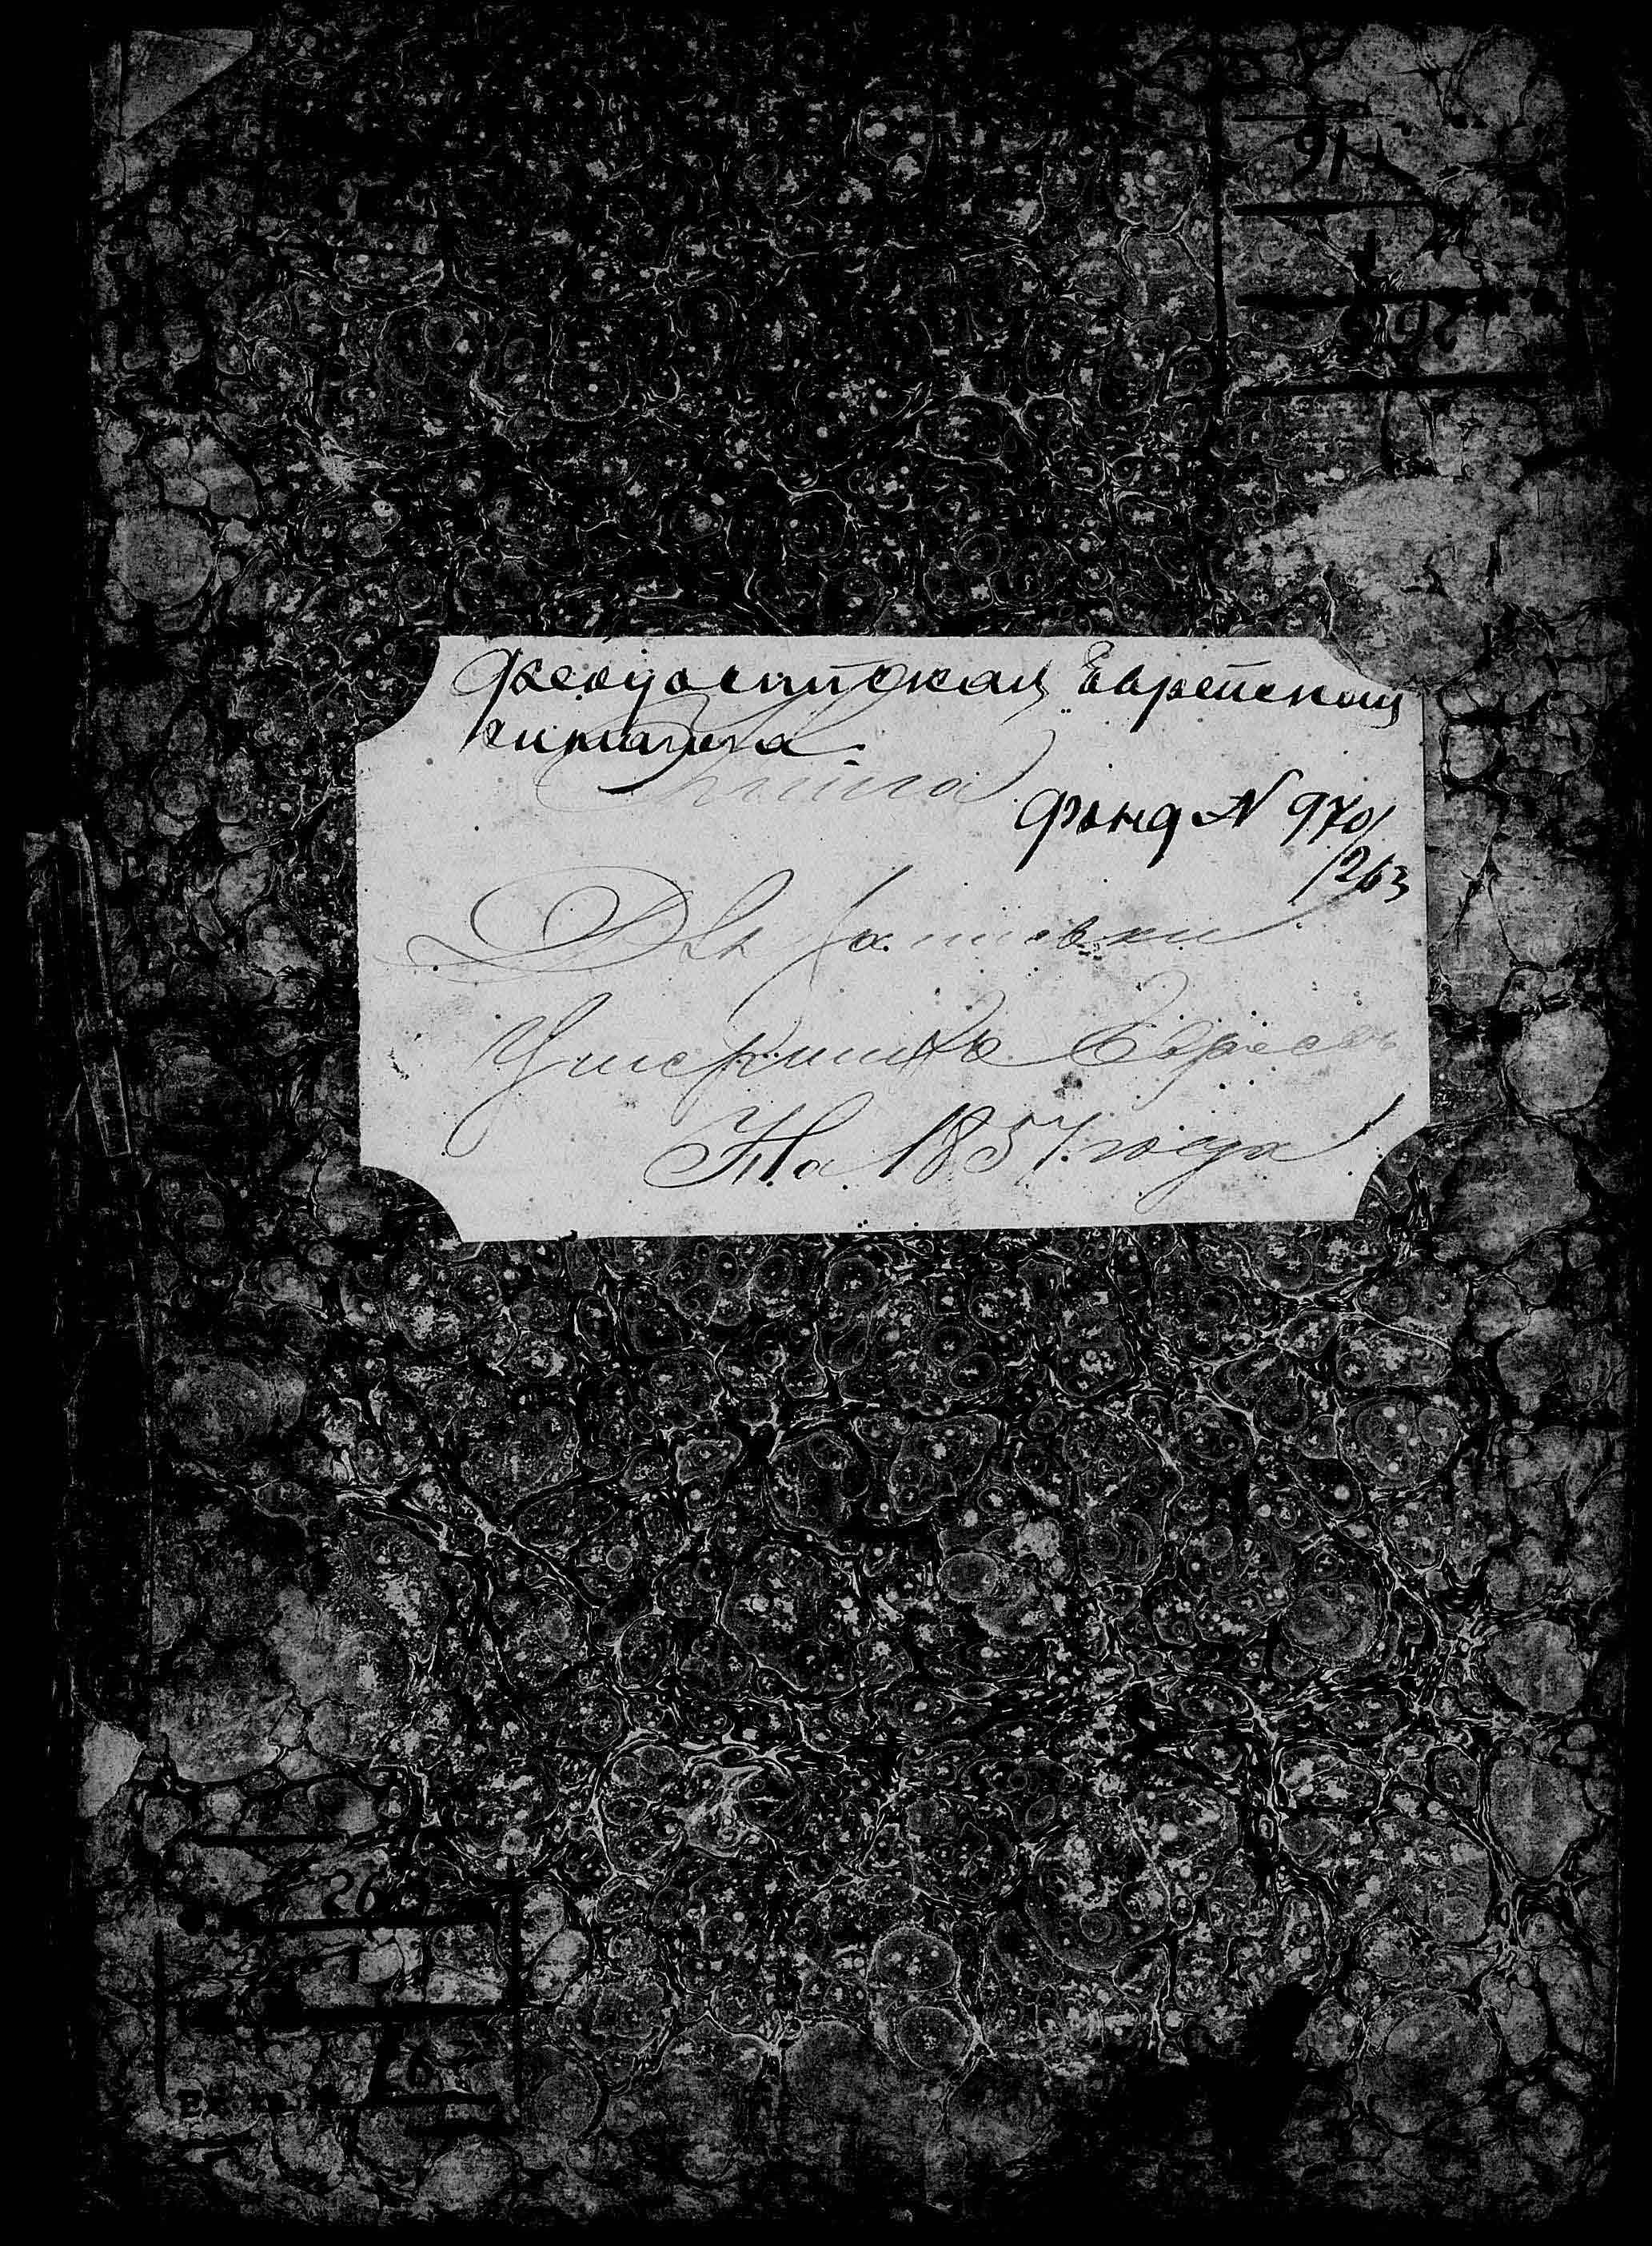 Феодосийская Еврейская
синагога
Книга
Фонд N 970/
/263
Для записки
Умершихъ Евреевъ
На 1857 года
263
1